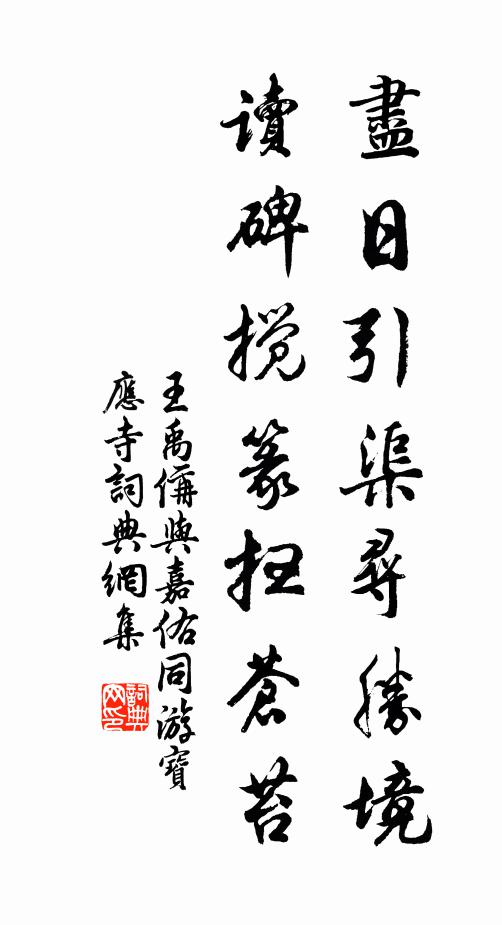 盡日引渠尋勝境
讀碑攪篆掃蒼苔
王禹偁與嘉佑同游寶
應寺詞典網集
詞典
网印